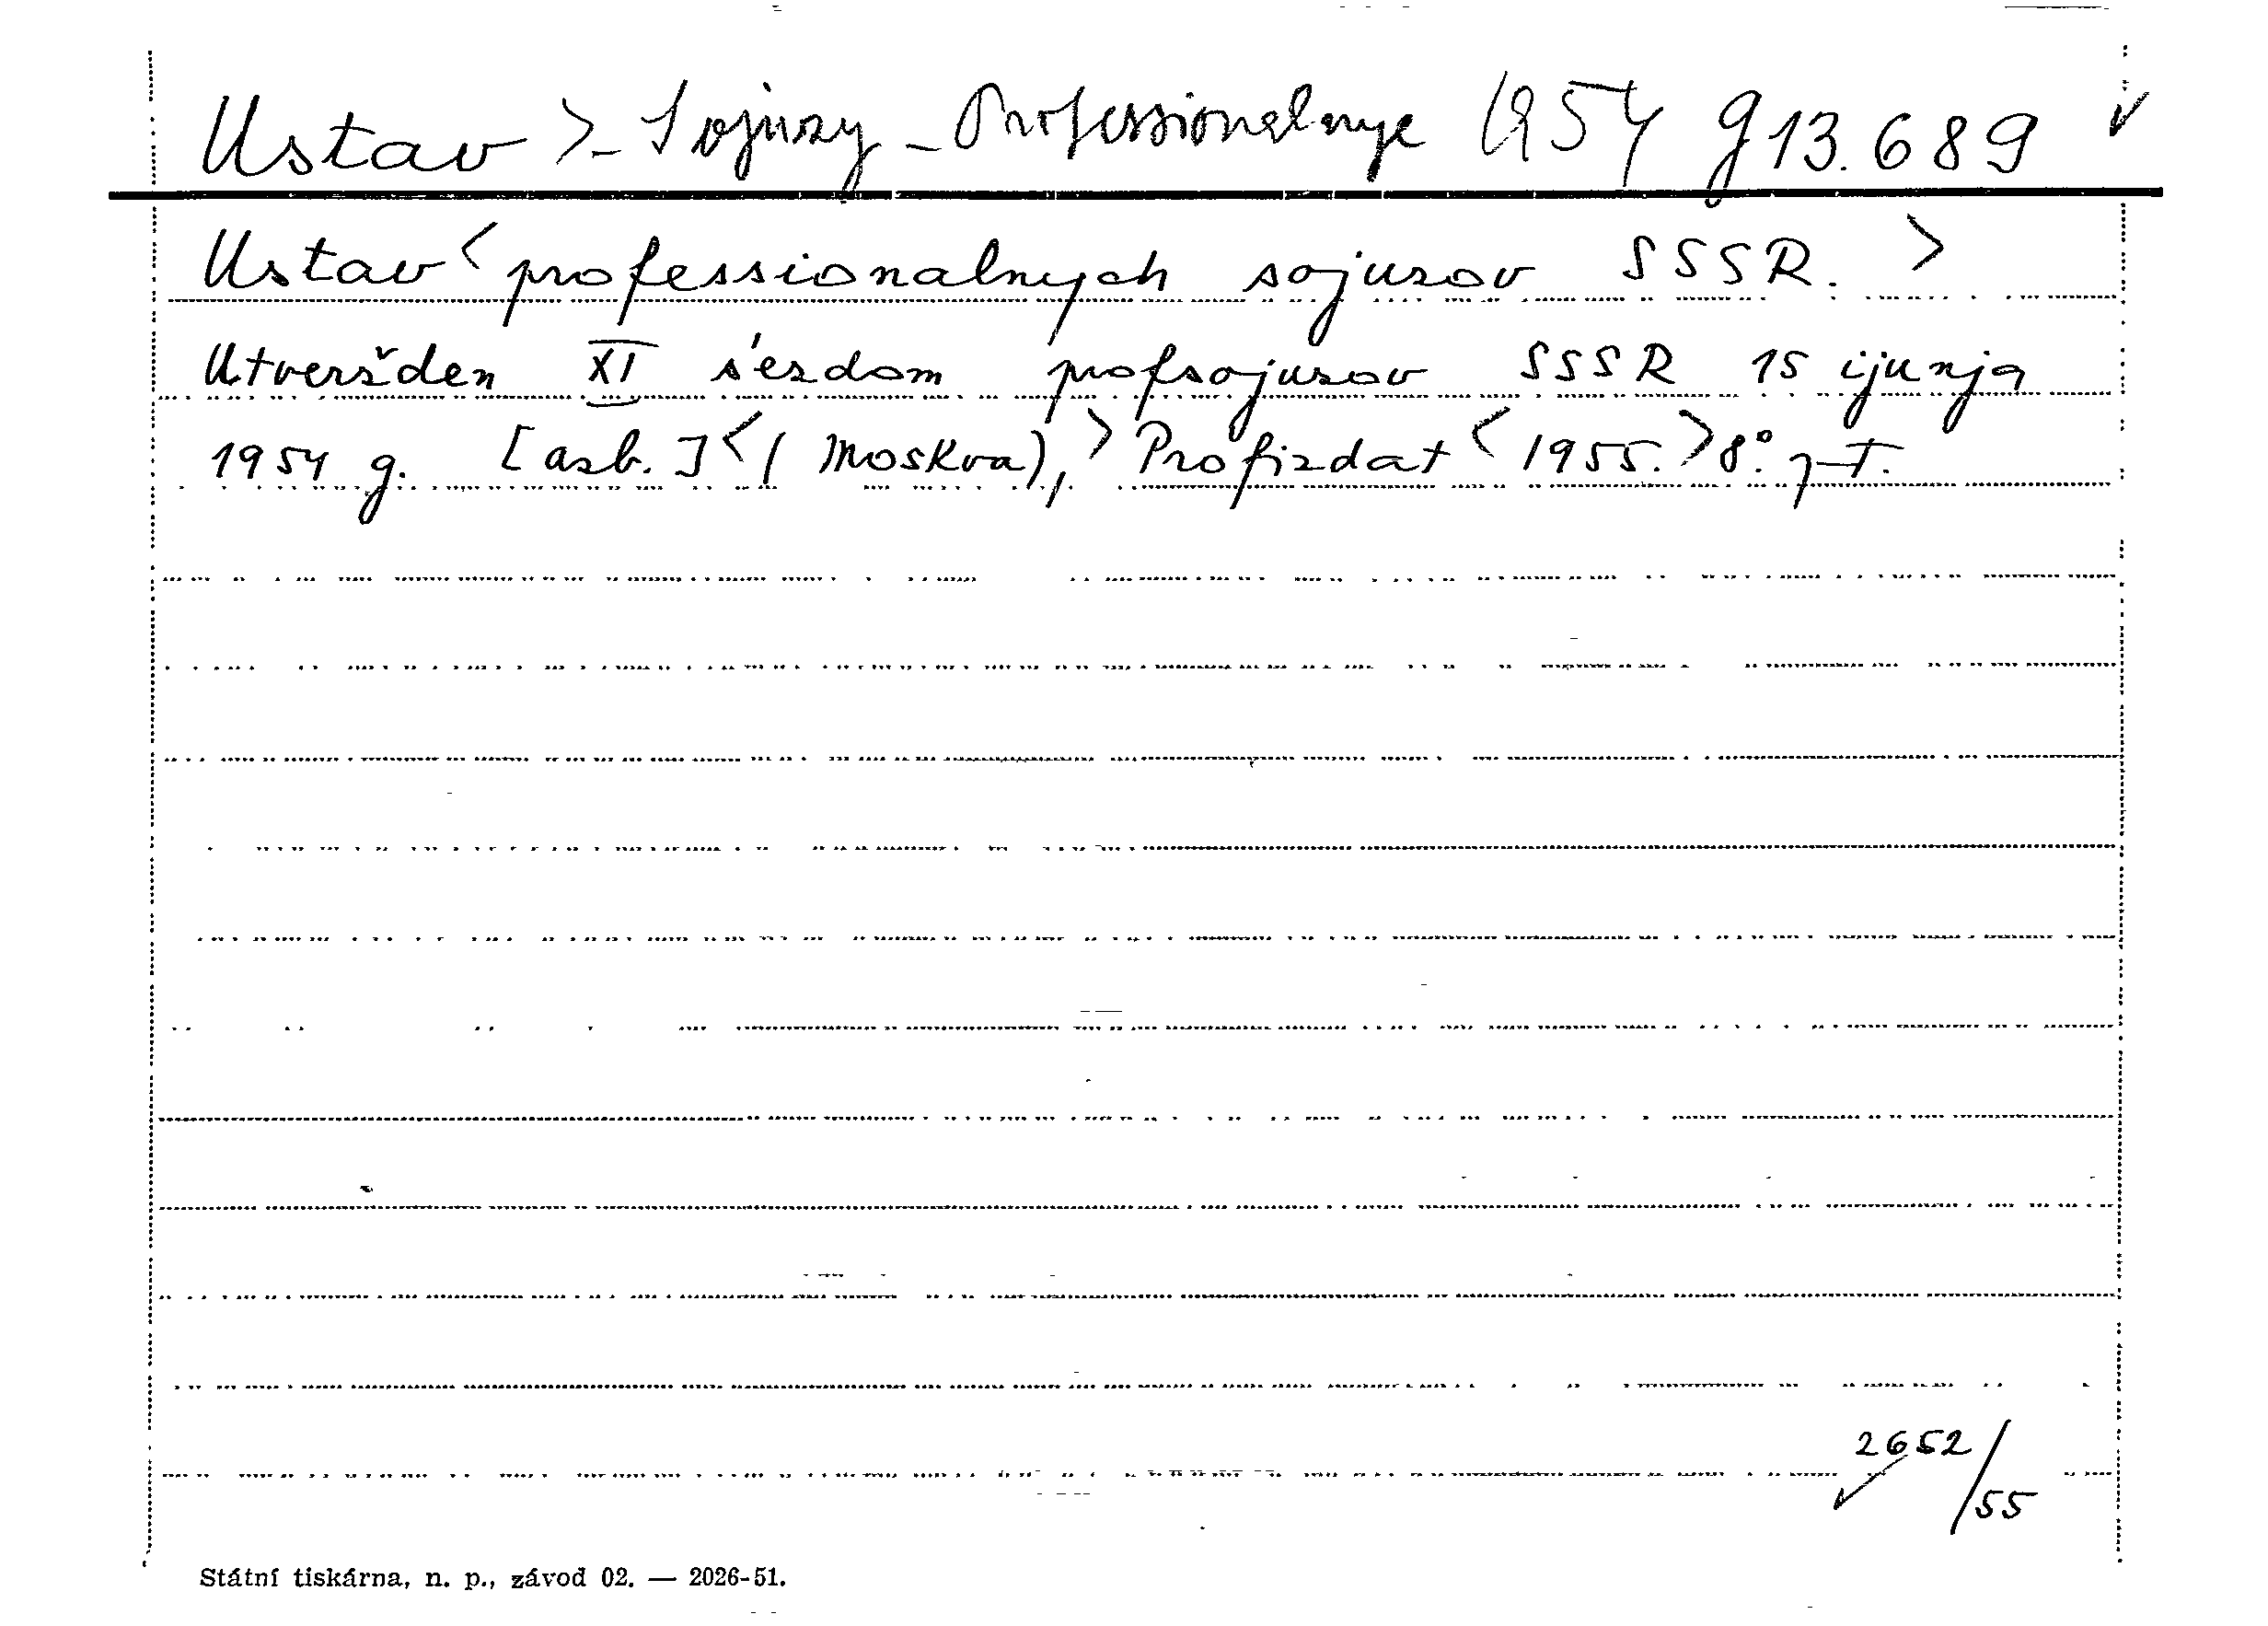 Ustav >- Sojuzy - Professionalnye 1954 g 13.689 ✓
Ustav < professionalnych sojuzov SSSR. >
Utveržden XI s'ezdom profsojuzov SSSR 15 ijunja
1954 g. [azb.] < (Moskva), > Profizdat < 1955. > 8°.
2652/55
Státní tiskárna, n. p., závod 02. — 2026-51.